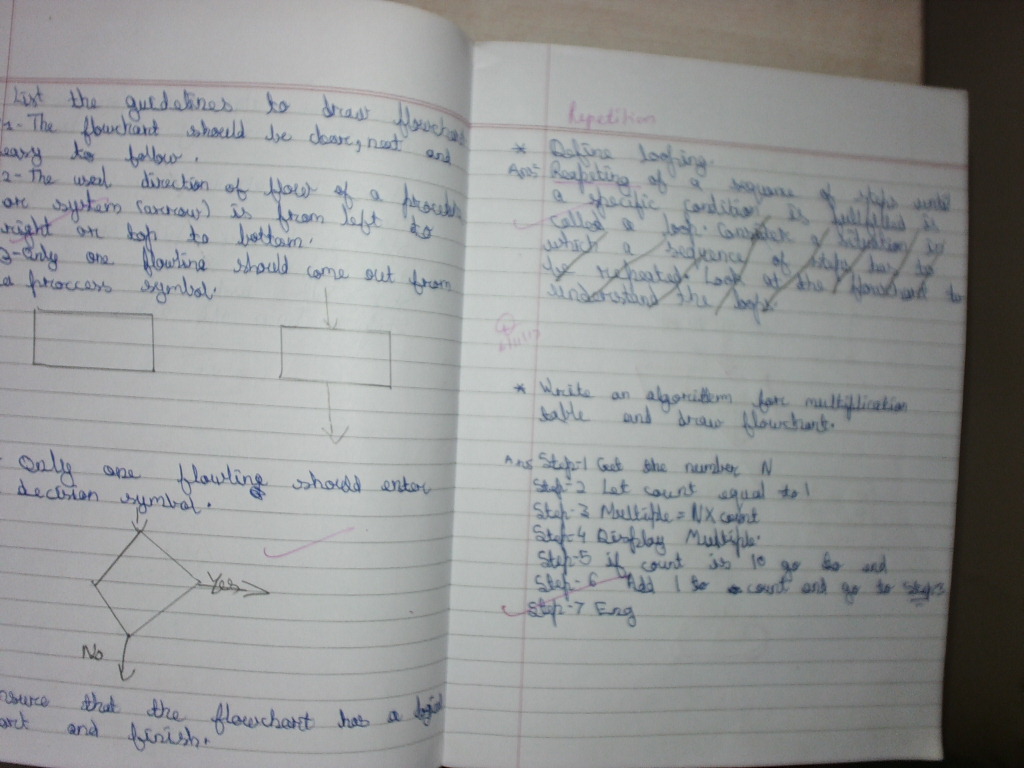 List the guidelines to draw flowchart
1- The flowchart should be clear, neat and
easy to follow.
2- The used direction of flow of a process
or system (arrow) is from left to
right or top to bottom.
3- Only one flowline should come out from
a proccess symbol.
Only one flowling should enter
decision symbol.
Yes
No
nsure that the flowchart has a logical
art and finish.
Repetition
* Define looping.
Ans- Reapeting of a sequence of steps until
a specific condition is fulfilled is
called a loop. Consider a situation in
which a sequence of steps has to
be repeated. Look at the flowchart to
understand the loop.
* Write an algorithm for multiplication
table and draw flowchart.
Ans Step-1 Get the number N
Step-2 Let count equal to 1
Step-3 Multiple = N X count
Step-4 Display Multiple.
Step-5 if count is 10 go to end
Step-6 Add 1 to count and go to Step 3
Step-7 Eng